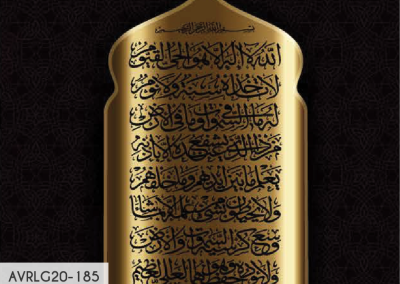 بسم الله الرحمن الرحيم
الله لا إله إلا هو الحي القيوم
لا تأخذه سنة ولا نوم
له ما في السموات وما في الأرض
من ذا الذي يشفع عنده إلا بإذنه
يعلم ما بين أيديهم وما خلفهم
ولا يحيطون بشيء من علمه إلا بما شاء
وسع كرسيه السموات والأرض
ولا يؤوده حفظهما وهو العلي العظيم
AVRLG20-185